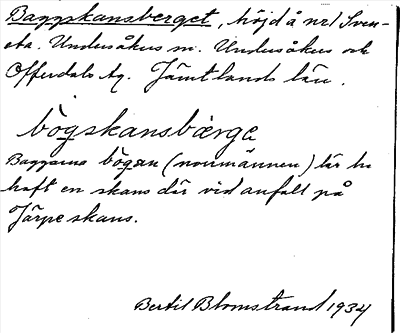 Baggskansberget, höjd å nr 1 Sven-
sta. Undersåkers sn. Undersåkers och
Offerdals tg. Jämtlands län.
bògskansbærge
Baggarna bògan (norrmännen) lär ha
haft en skans där vid anfall på
Järpe skans.
Bertil Blomstrand 1934